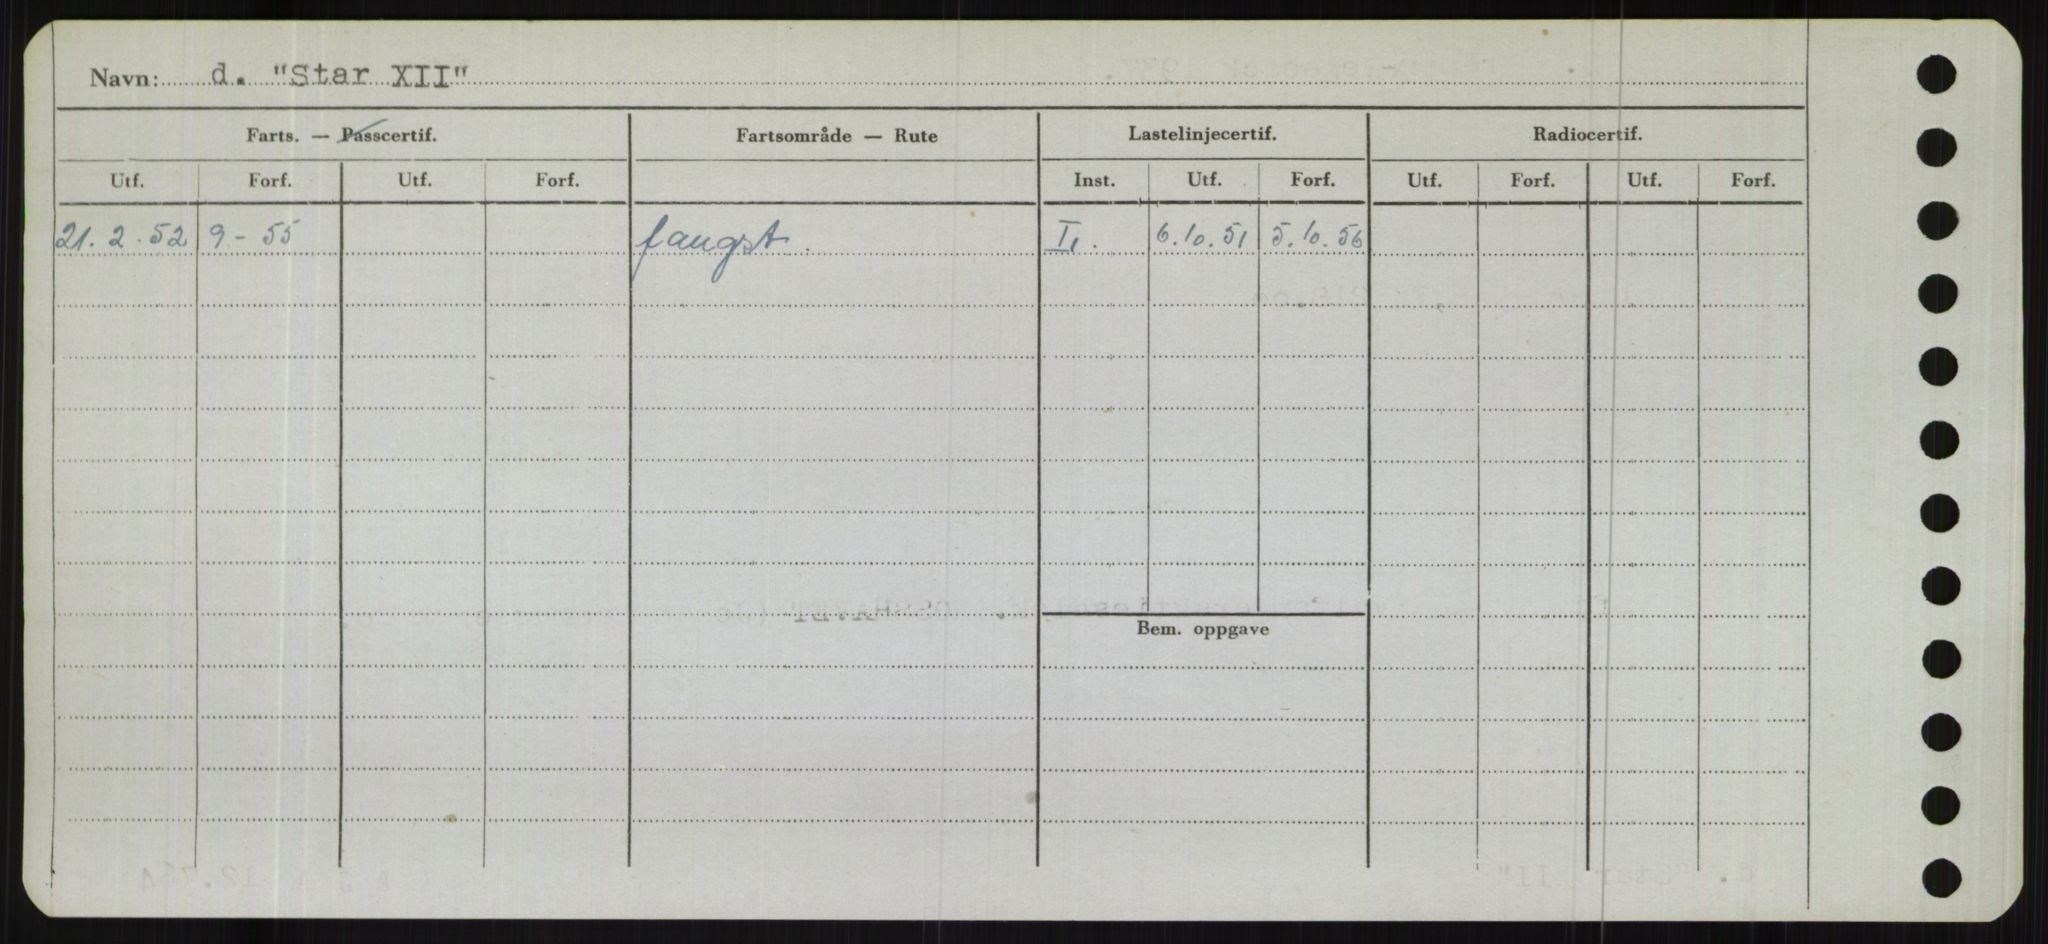 Navn: d. "Star XII"
Farts. — Passcertif. Fartsområde — Rute Lastelinjecertif. Radiocertif.
Utf. Forf. Utf. Forf. Inst. Utf. Forf. Utf. Forf. Utf. Forf.
21.2.52 9-55 fangst. 6.10.51 5.10.56
Bem. oppgave